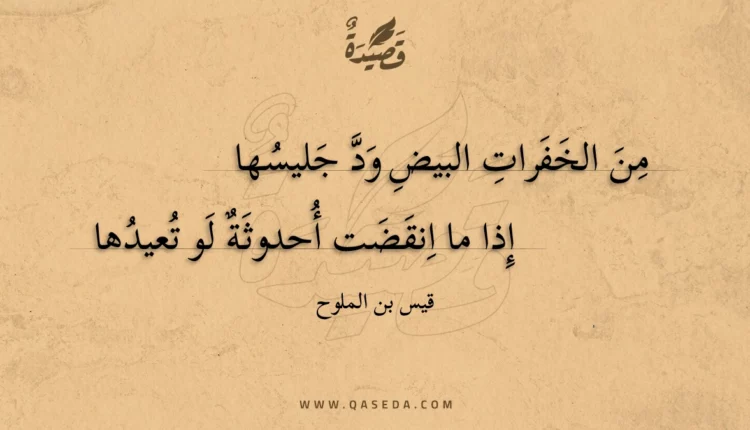 قَصِيدَةٌ
مِنَ الخَفَراتِ البيضِ وَدَّ جَليسُها
إِذا ما اِنقَضَت أُحدوثَةٌ لَو تُعيدُها
قيس بن الملوح
WWW.QASEDA.COM